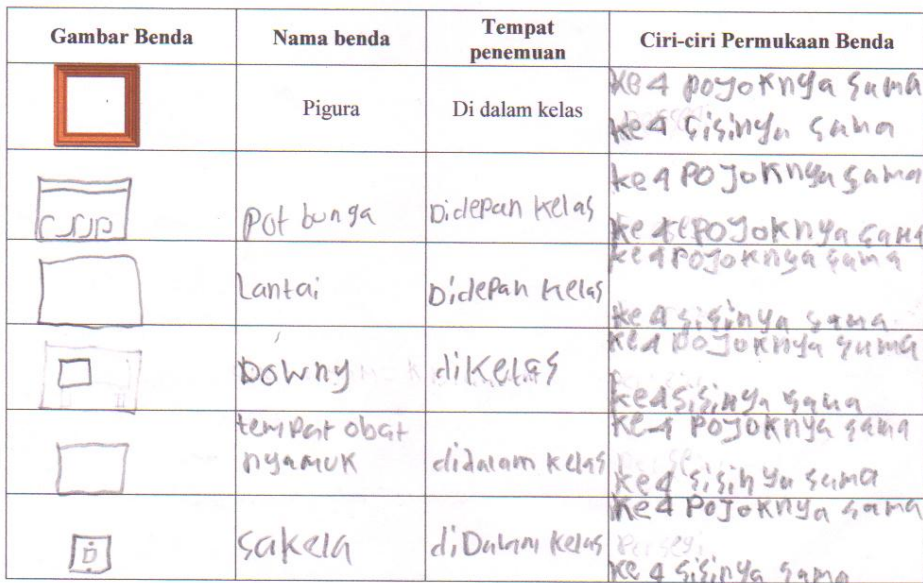 Gambar Benda
Nama benda
Tempat penemuan
Ciri-ciri Permukaan Benda
Pigura
Di dalam kelas
ke 4 pojoknya sama
ke 4 sisinya sama
Pot bunga
Didepan kelas
ke 4 Pojoknya sama
Lantai
Didepan kelas
ke 4 pojoknya sama
ke 4 sisinya sama
Downy
dikelas
ke 4 pojoknya sama
ke 4 sisinya sama
tempat obat
nyamuk
didalam kelas
ke 4 Pojoknya sama
ke 4 sisinya sama
Sakela
diDalam kelas
ke 4 Pojoknya sama
Persegi
ke 4 sisinya sama